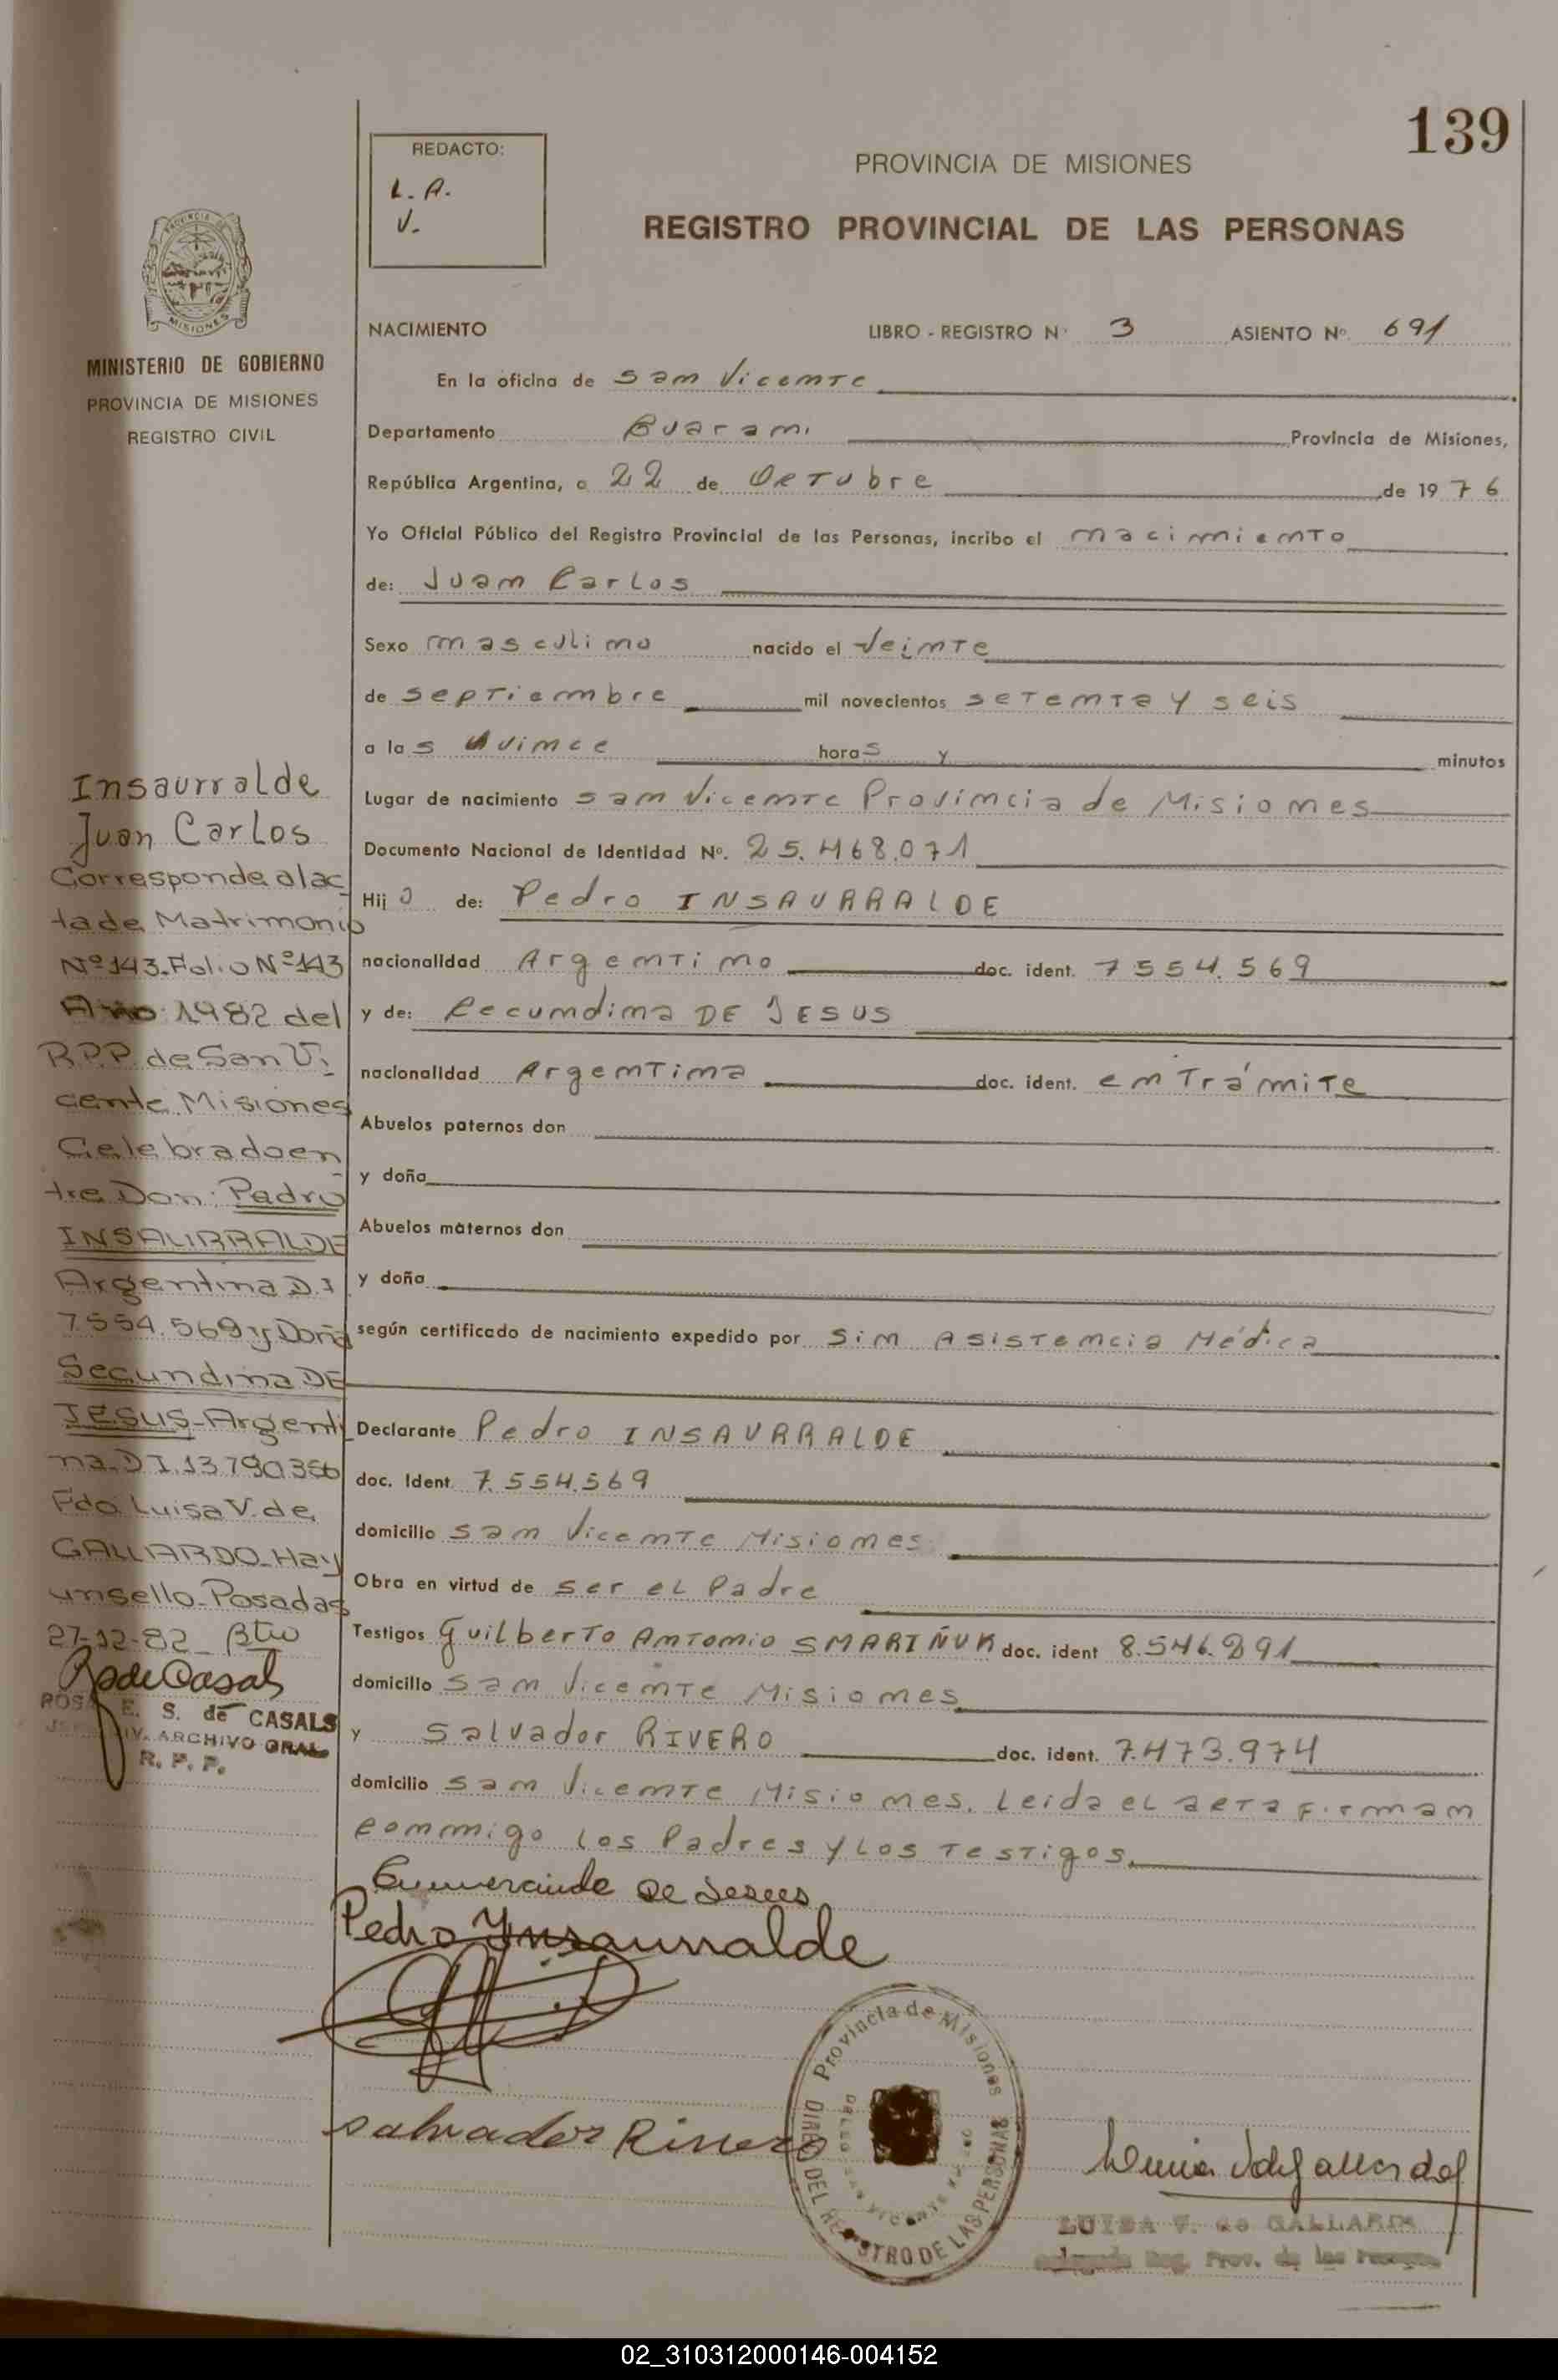 139
REDACTO:
L. A.
V.
PROVINCIA DE MISIONES
REGISTRO PROVINCIAL DE LAS PERSONAS
MINISTERIO DE GOBIERNO
PROVINCIA DE MISIONES
REGISTRO CIVIL
NACIMIENTO LIBRO - REGISTRO Nº 3 ASIENTO Nº. 691
En la oficina de San Vicente
Departamento Guarani Provincia de Misiones,
República Argentina, a 22 de Octubre de 1976
Yo Oficial Público del Registro Provincial de las Personas, incribo el nacimiento
de: Juan Carlos
Sexo masculino nacido el Veinte
de septiembre mil novecientos setenta y seis
a las quince horas y minutos
Lugar de nacimiento San Vicente Provincia de Misiones
Documento Nacional de Identidad Nº. 25.468.071
Hijo de: Pedro INSAURRALDE
nacionalidad Argentino doc. ident. 7554.569
y de: Secundina DE JESUS
nacionalidad Argentina doc. ident. en Trámite
Abuelos paternos don
y doña
Abuelos maternos don
y doña
según certificado de nacimiento expedido por Sin Asistencia Médica
Declarante Pedro INSAURRALDE
doc. Ident. 7.554.569
domicilio San Vicente Misiones
Obra en virtud de ser el Padre
Testigos Guilberto Antonio SMARIÑUK doc. ident 8.546.291
domicilio San Vicente Misiones
y Salvador RIVERO doc. ident. 7.473.974
domicilio San Vicente Misiones. Leida el acta firman
conmigo los Padres y los Testigos.
de Jesus
Pedro Ynsaurralde
Salvador Rivero
Provincia de Misiones
DEL REGISTRO DE LAS PERSONAS
LUISA V. de GALLARDO
Reg. Prov. de las Personas
Insaurralde
Juan Carlos
Corresponde al ac
ta de Matrimonio
Nº 143. Folio Nº 143
Año 1982 del
R.P.P. de San Vi
cente Misiones
Celebrado en
tre Don: Pedro
INSAURRALDE
Argentina D.I
7554.569 y Doña
Secundina DE
JESUS-Argenti
na D I. 13790356
Fdo Luisa V. de
GALLARDO-Hay
un sello-Posadas
27-12-82
R de Casals
ROSA E. S. de CASALS
DIV. ARCHIVO GRAL
R. P. P.
02_310312000146-004152